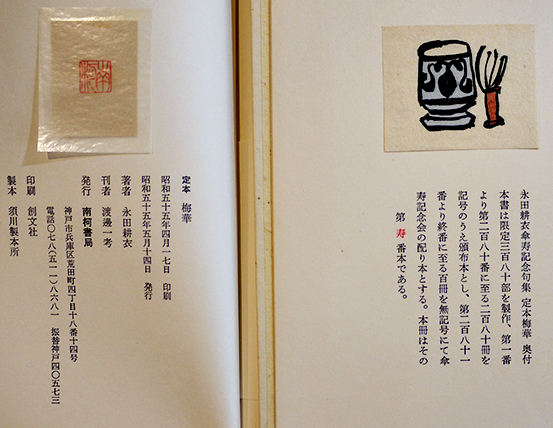 永田耕衣傘寿記念句集 定本梅華 奥付
本書は限定三百八十部を製作、第一番
より第二百八十番に至る二百八十冊を
記号のうえ頒布本とし、第二百八十一
番より終番に至る百冊を無記号にて傘
寿記念会の配り本とする。本冊はその
第 寿 番本である。
定本 梅華
昭和五十五年四月一七日 印刷
昭和五十五年五月十四日 発行
著者 永田耕衣
刊者 渡邊一考
発行 南柯書局
神戸市兵庫区荒田町四丁目十八番十四号
電話〇七八(五一一)八六八一 振替神戸四〇五七三
印刷 創文社
製本 須川製本所